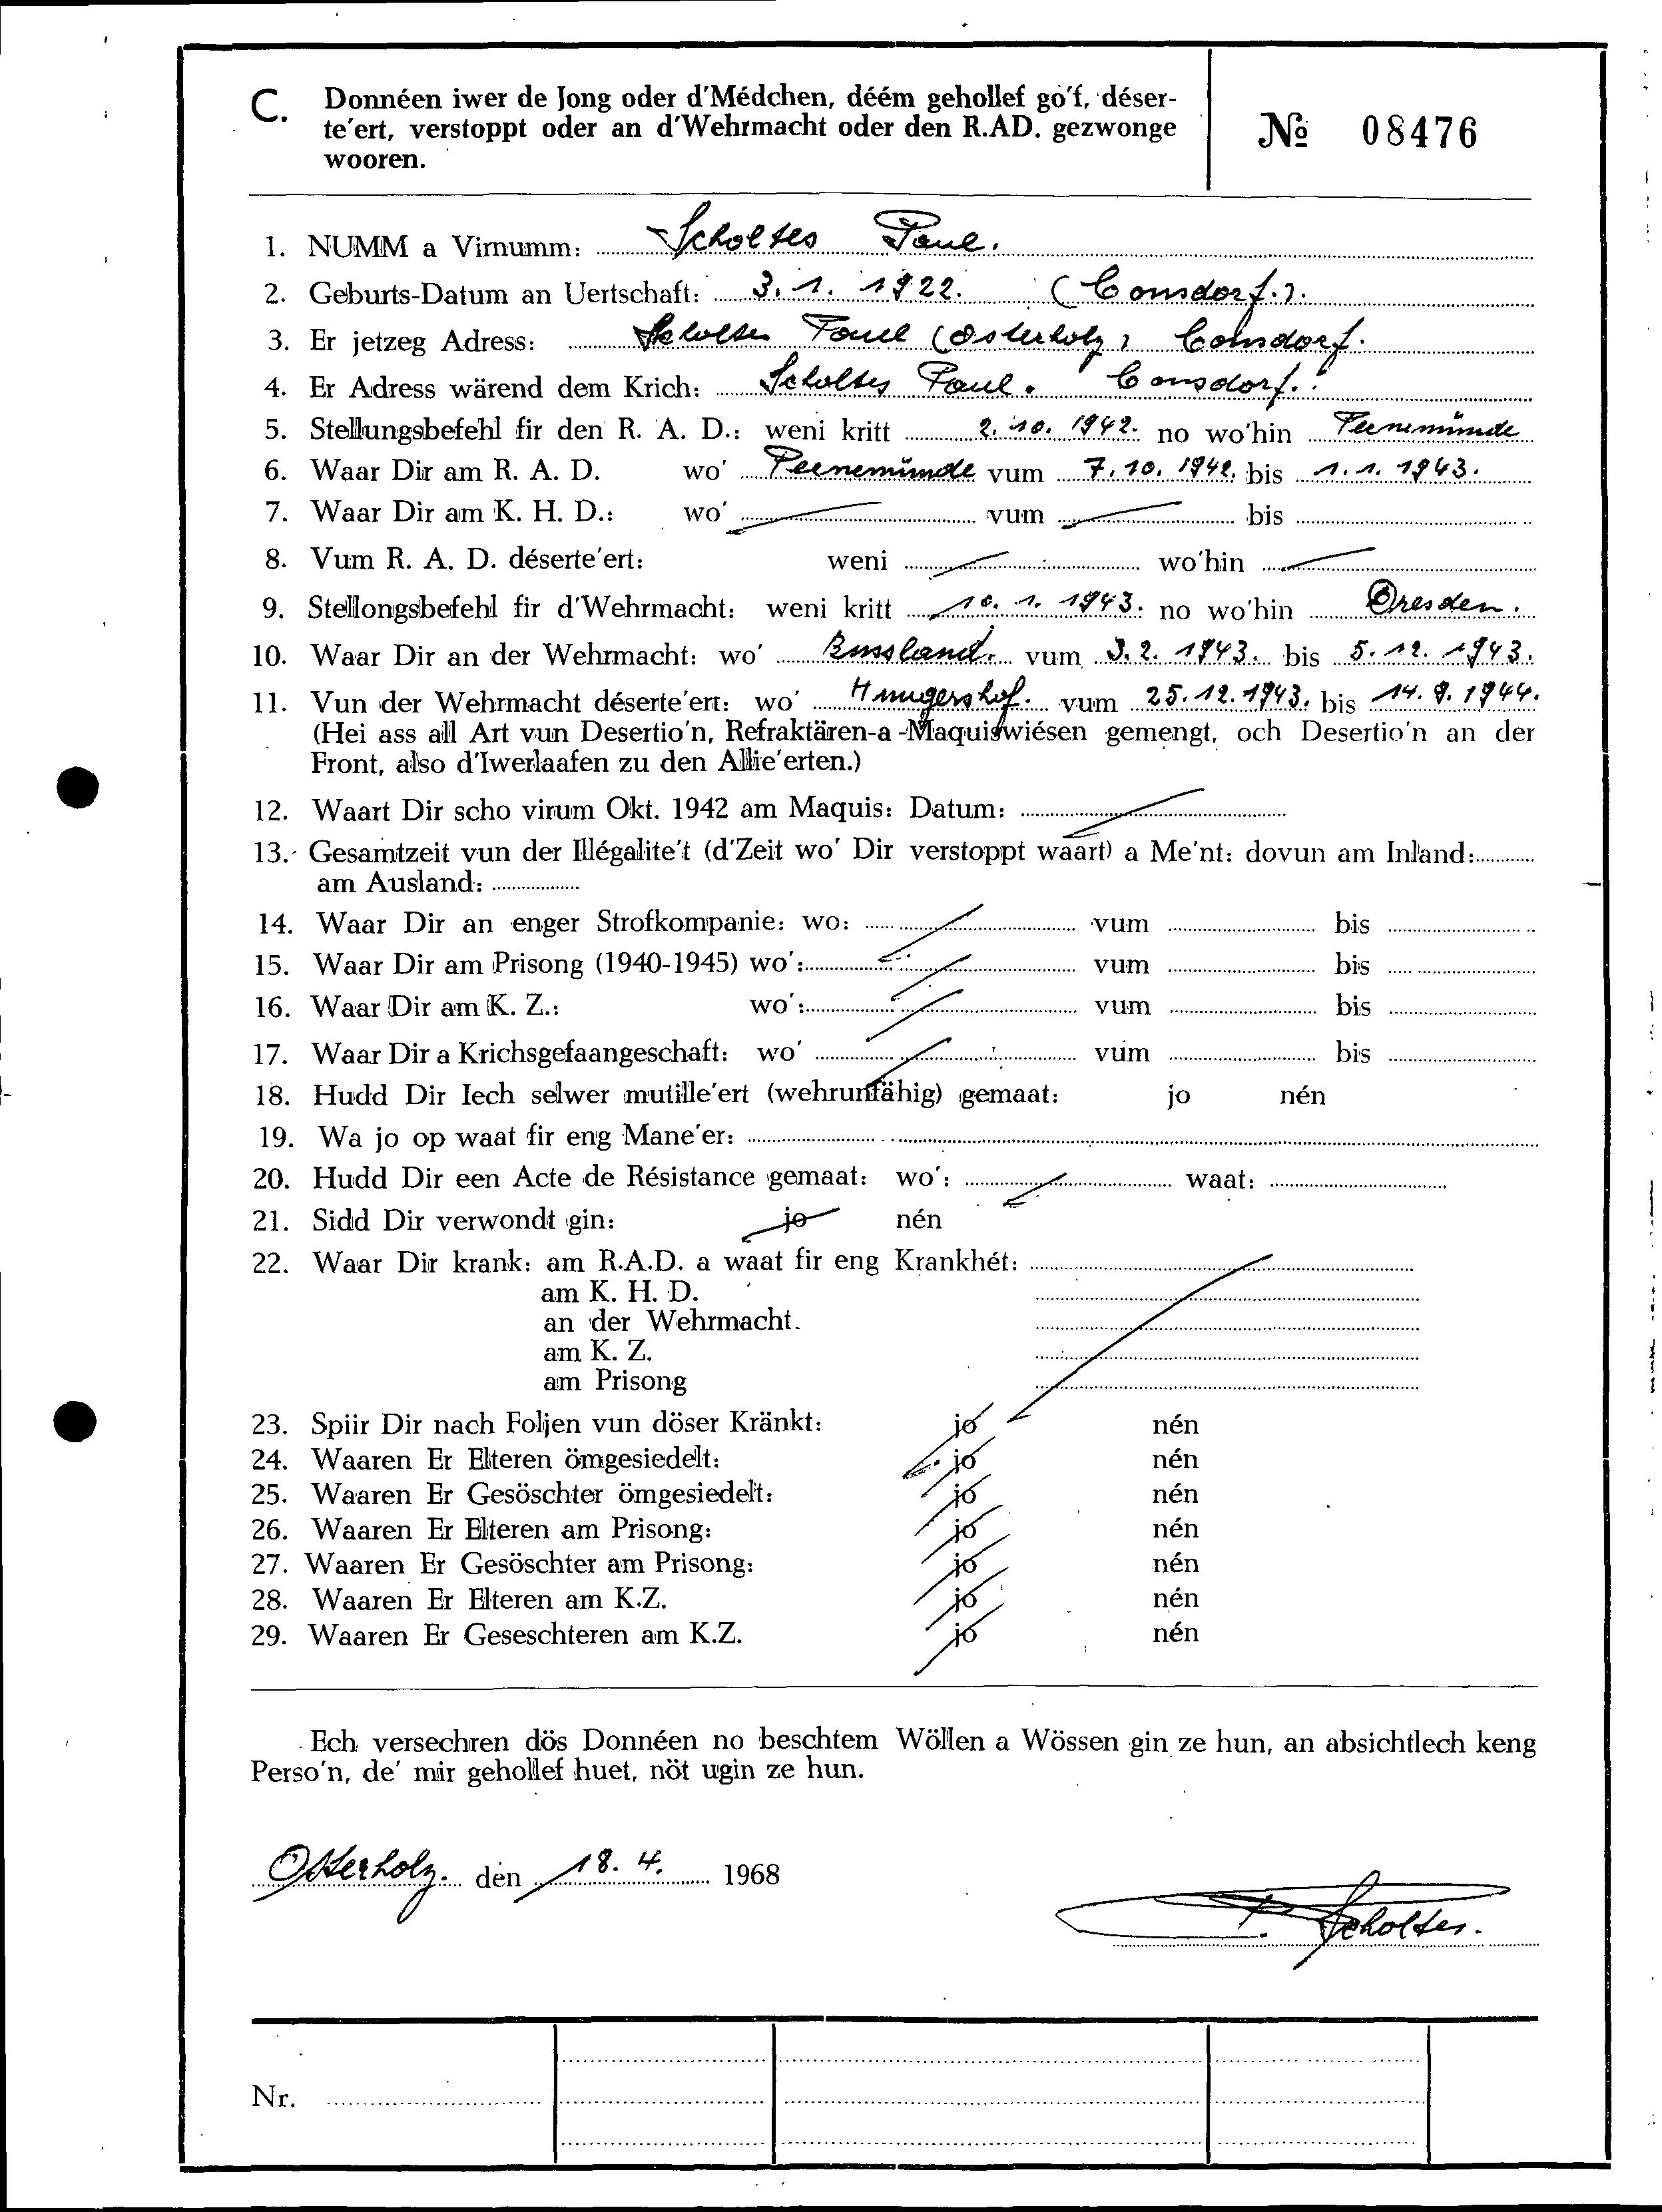 C. Donnéen iwer de Jong oder d'Médchen, déém gehollef go'f, déser-
te'ert, verstoppt oder an d'Wehrmacht oder den R.AD. gezwonge
wooren.
№ 08476
1. NUMM a Virnumm: Scholtes Paul.
2. Geburts-Datum an Uertschaft: 3. 1. 1922. (Consdorf.).
3. Er jetzeg Adress: Scholtes Paul (Osterholz) Consdorf.
4. Er Adress wärend dem Krich: Scholtes Paul. Consdorf.
5. Stellungsbefehl fir den R. A. D.: weni kritt 2. 10. 1942. no wo'hin Peenemünde
6. Waar Dir am R. A. D. wo' Peenemünde vum 7. 10. 1942. bis 1. 1. 1943.
7. Waar Dir am K. H. D.: wo' vum bis
8. Vum R. A. D. déserte'ert: weni wo'hin
9. Stellongsbefehl fir d'Wehrmacht: weni kritt 10. 1. 1943. no wo'hin Dresden.
10. Waar Dir an der Wehrmacht: wo' Russland. vum 3. 2. 1943. bis 5. 12. 1943.
11. Vun der Wehrmacht déserte'ert: wo' vum 25. 12. 1943. bis 14. 9. 1944.
(Hei ass all Art vun Desertio'n, Refraktären-a-Maquiswiésen gemengt, och Desertio'n an der
Front, also d'Iwerlaafen zu den Allie'erten.)
12. Waart Dir scho virum Okt. 1942 am Maquis: Datum:
13. Gesamtzeit vun der Illégalite't (d'Zeit wo' Dir verstoppt waart) a Me'nt: dovun am Inland:
am Ausland:
14. Waar Dir an enger Strofkompanie: wo: vum bis
15. Waar Dir am Prisong (1940-1945) wo': vum bis
16. Waar Dir am K. Z.: wo': vum bis
17. Waar Dir a Krichsgefaangeschaft: wo' vum bis
18. Hudd Dir Iech selwer mutille'ert (wehrunfähig) gemaat: jo nén
19. Wa jo op waat fir eng Mane'er:
20. Hudd Dir een Acte de Résistance gemaat: wo': waat:
21. Sidd Dir verwondt gin: jo nén
22. Waar Dir krank: am R.A.D. a waat fir eng Krankhét:
am K. H. D.
an der Wehrmacht.
am K. Z.
am Prisong
23. Spiir Dir nach Foljen vun döser Kränkt: jo nén
24. Waaren Er Elteren ömgesiedelt: jo nén
25. Waaren Er Gesöschter ömgesiedelt: jo nén
26. Waaren Er Elteren am Prisong: jo nén
27. Waaren Er Gesöschter am Prisong: jo nén
28. Waaren Er Elteren am K.Z. jo nén
29. Waaren Er Geseschteren am K.Z. jo nén
Ech versechren dös Donnéen no beschtem Wöllen a Wössen gin ze hun, an absichtlech keng
Perso'n, de' mir gehollef huet, nöt ugin ze hun.
Osterholz. den 18. 4. 1968
P. Scholtes.
Nr.